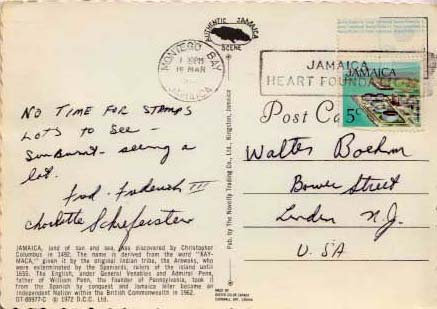 AUTHENTIC JAMAICA
SCENE
MONTEGO BAY
PM
MAR
JAMAICA
JAMAICA
HEART FOUNDAT
JAMAICA
5c
Post Ca
NO TIME FOR STAMPS
LOTS TO SEE -
Sunburnt - seeing a
lot.
Fred. Frederick III
Charlotte
Walter Boehm
Bower Street
Linden N.J.
U.S.A
Pub. by The Novelty Trading Co., Ltd., Kingston, Jamaica
JAMAICA, land of sun and sea, was discovered by Christopher
Columbus in 1492. The name is derived from the word "XAY-
MACA," given it by the original Indian tribe, the Arawaks, who
were exterminated by the Spaniards, rulers of the island until
1655. The English, under General Venables and Admiral Penn,
father of William Penn, the founder of Pennsylvania, took it
from the Spanish by conquest and Jamaica later became an
Independent Nation within the British Commonwealth in 1962.
DT-88977-C © 1972 D.C.C. Ltd.
MADE BY